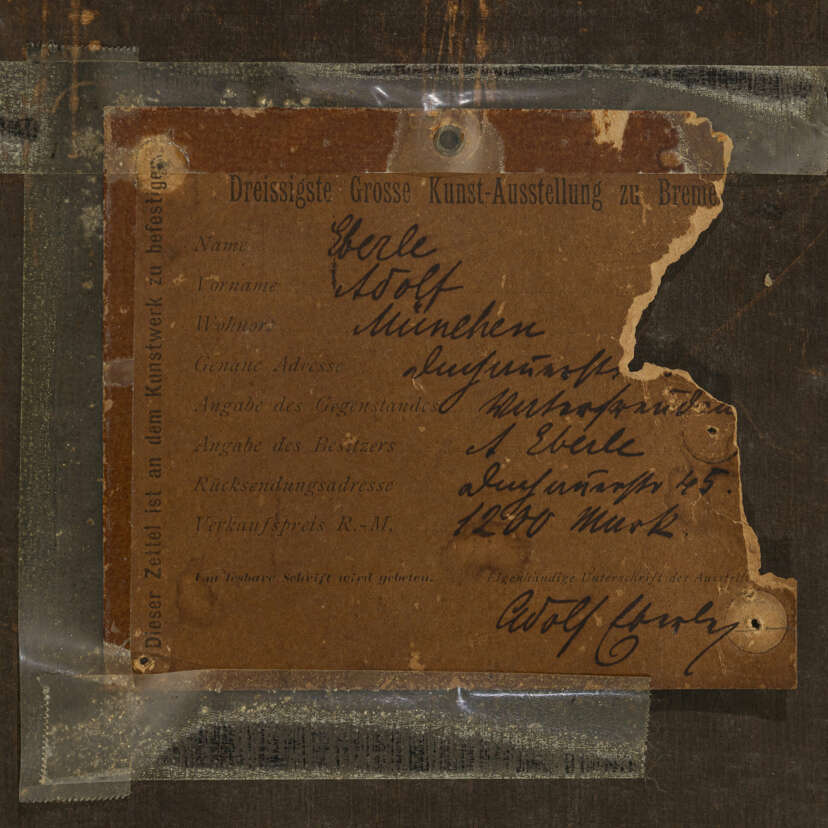 Dreissigste Grosse Kunst-Ausstellung zu Breme
Name Eberle
Vorname Adolf
Wohnort München
Genaue Adresse Dachauerstr.
Angabe des Gegenstandes Vaterfreuden
Angabe des Besitzers A Eberle
Rücksendungsadresse Dachauerstr 45.
Verkaufspreis R.-M. 1200 Mark.
Um lesbare Schrift wird gebeten. Eigenhändige Unterschrift der Ausstell
Adolf Eberle
Dieser Zettel ist an dem Kunstwerk zu befestigen